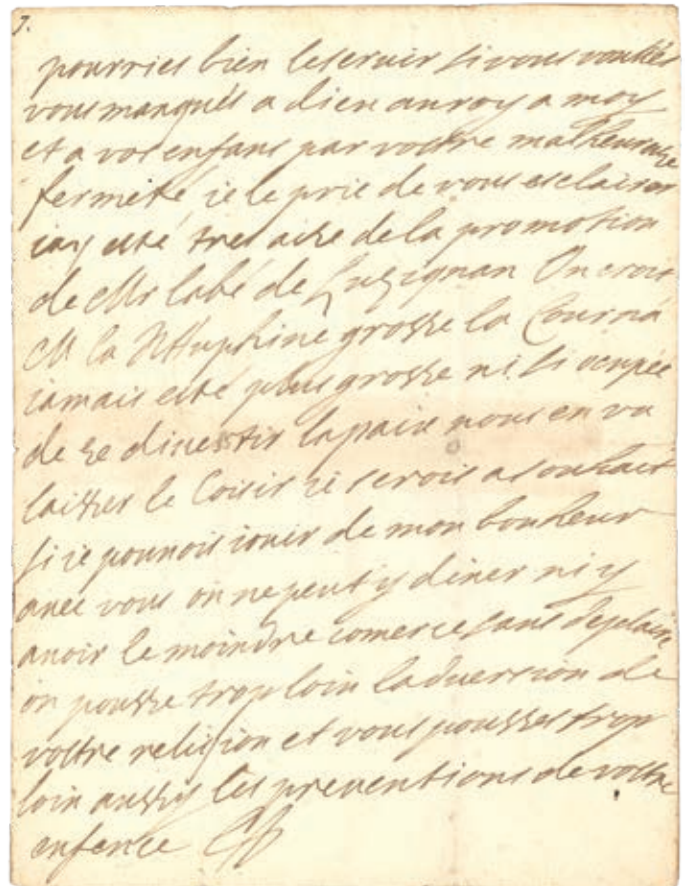 3.
pourries bien le seruir si vous vouliés
vous manqués a dieu au roy a moy
et a vos enfans par vostre malheureuse
fermeté ie le prie de vous esclairer
iay esté tres aise de la promotion
de Mr labé de Luzignan On croit
M la Dauphine grosse la Cour na
iamais esté plus grosse ni si ocupée
de se diuertir la paix nous en va
laisser le loisir ie serois a souhait
si ie pouuois iouir de mon bonheur
auec vous on ne peut y diner ni y
auoir le moindre comerce sans deplaire
on pousse trop loin laduersion de
vostre religion et vous pousses trop
loin aussy les preuentions de vostre
enfence